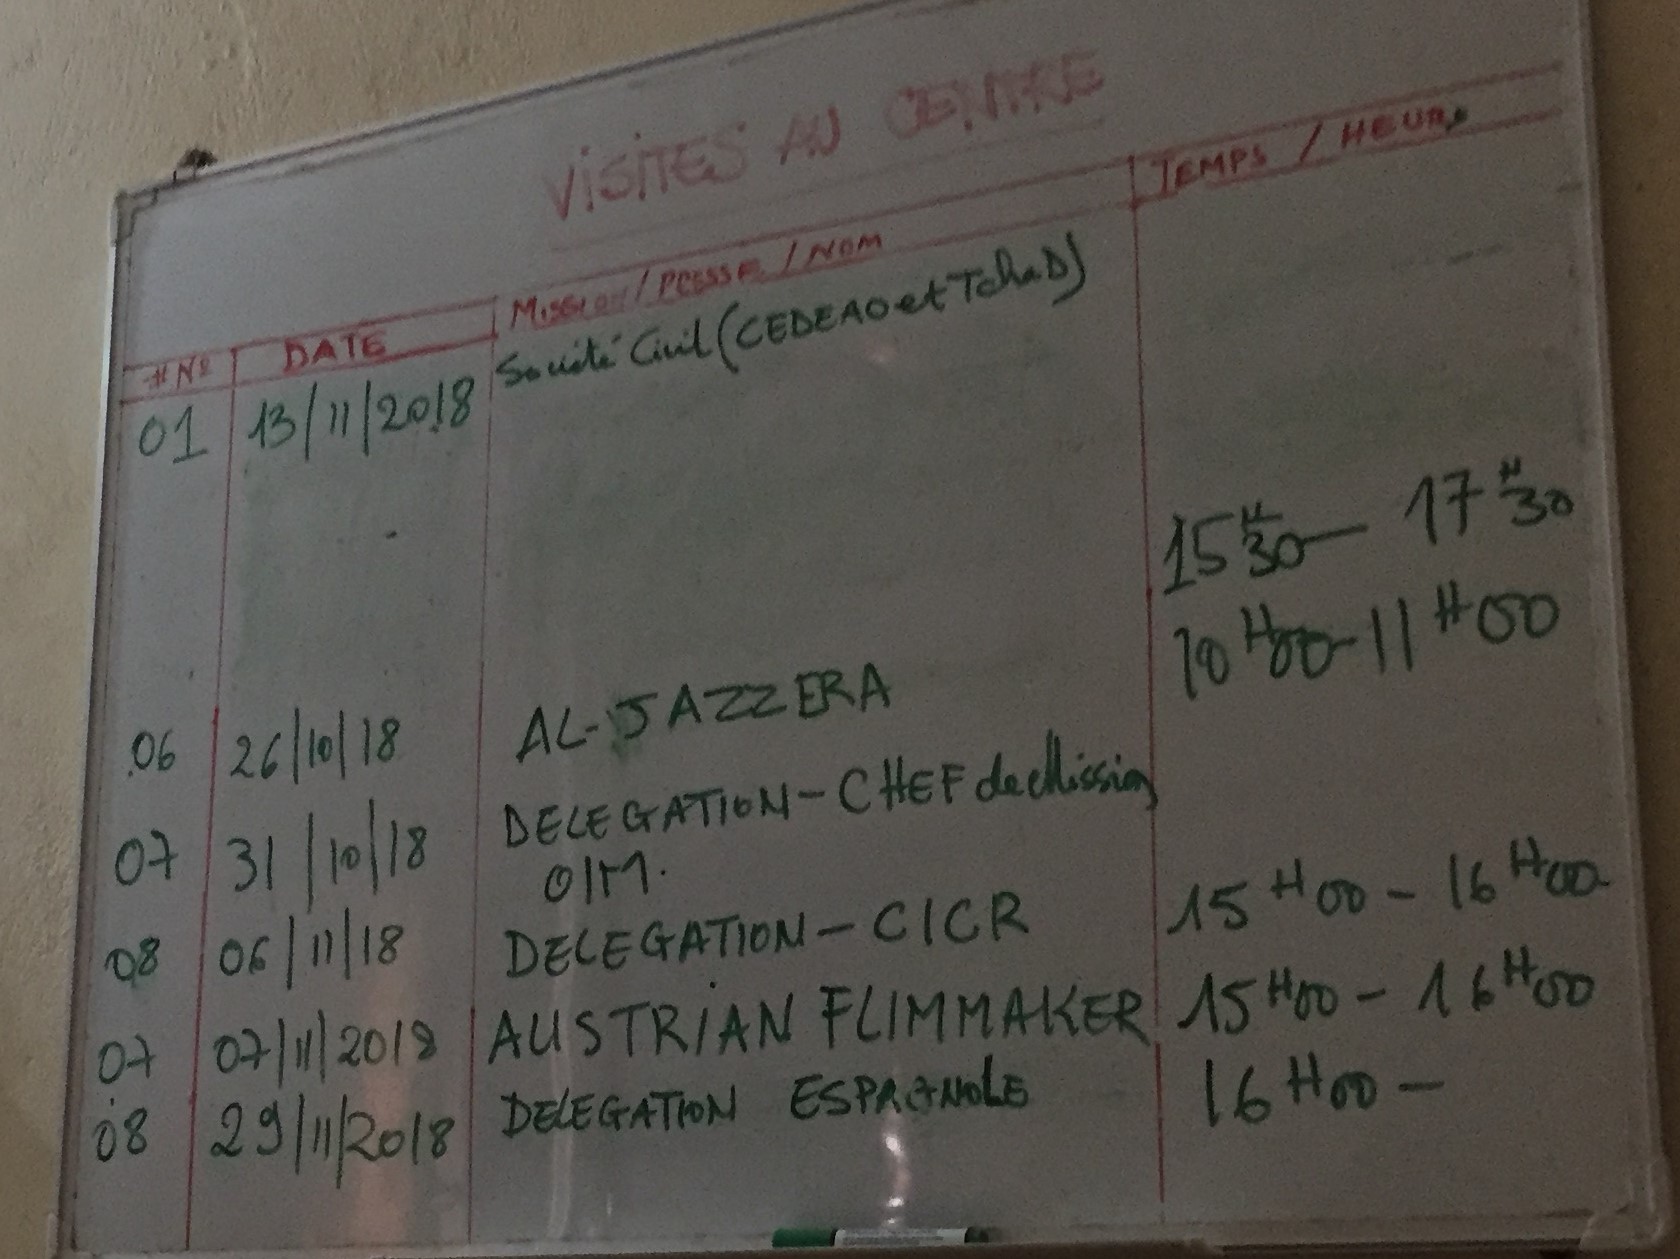 VISITES AU CENTRE
# N° DATE MISSION / PRESSE / NOM TEMPS / HEURE
01 13/11/2018 Société Civil (CEDEAO et TchaD)
15H30 — 17H30
10H00 - 11H00
06 26/10/18 AL-JAZZERA
07 31/10/18 DELEGATION - CHEF de Mission
OIM.
08 06/11/18 DELEGATION - CICR 15H00 - 16H00
07 07/11/2018 AUSTRIAN FLIMMAKER 15H00 - 16H00
08 29/11/2018 DELEGATION ESPAGNOLE 16H00 -